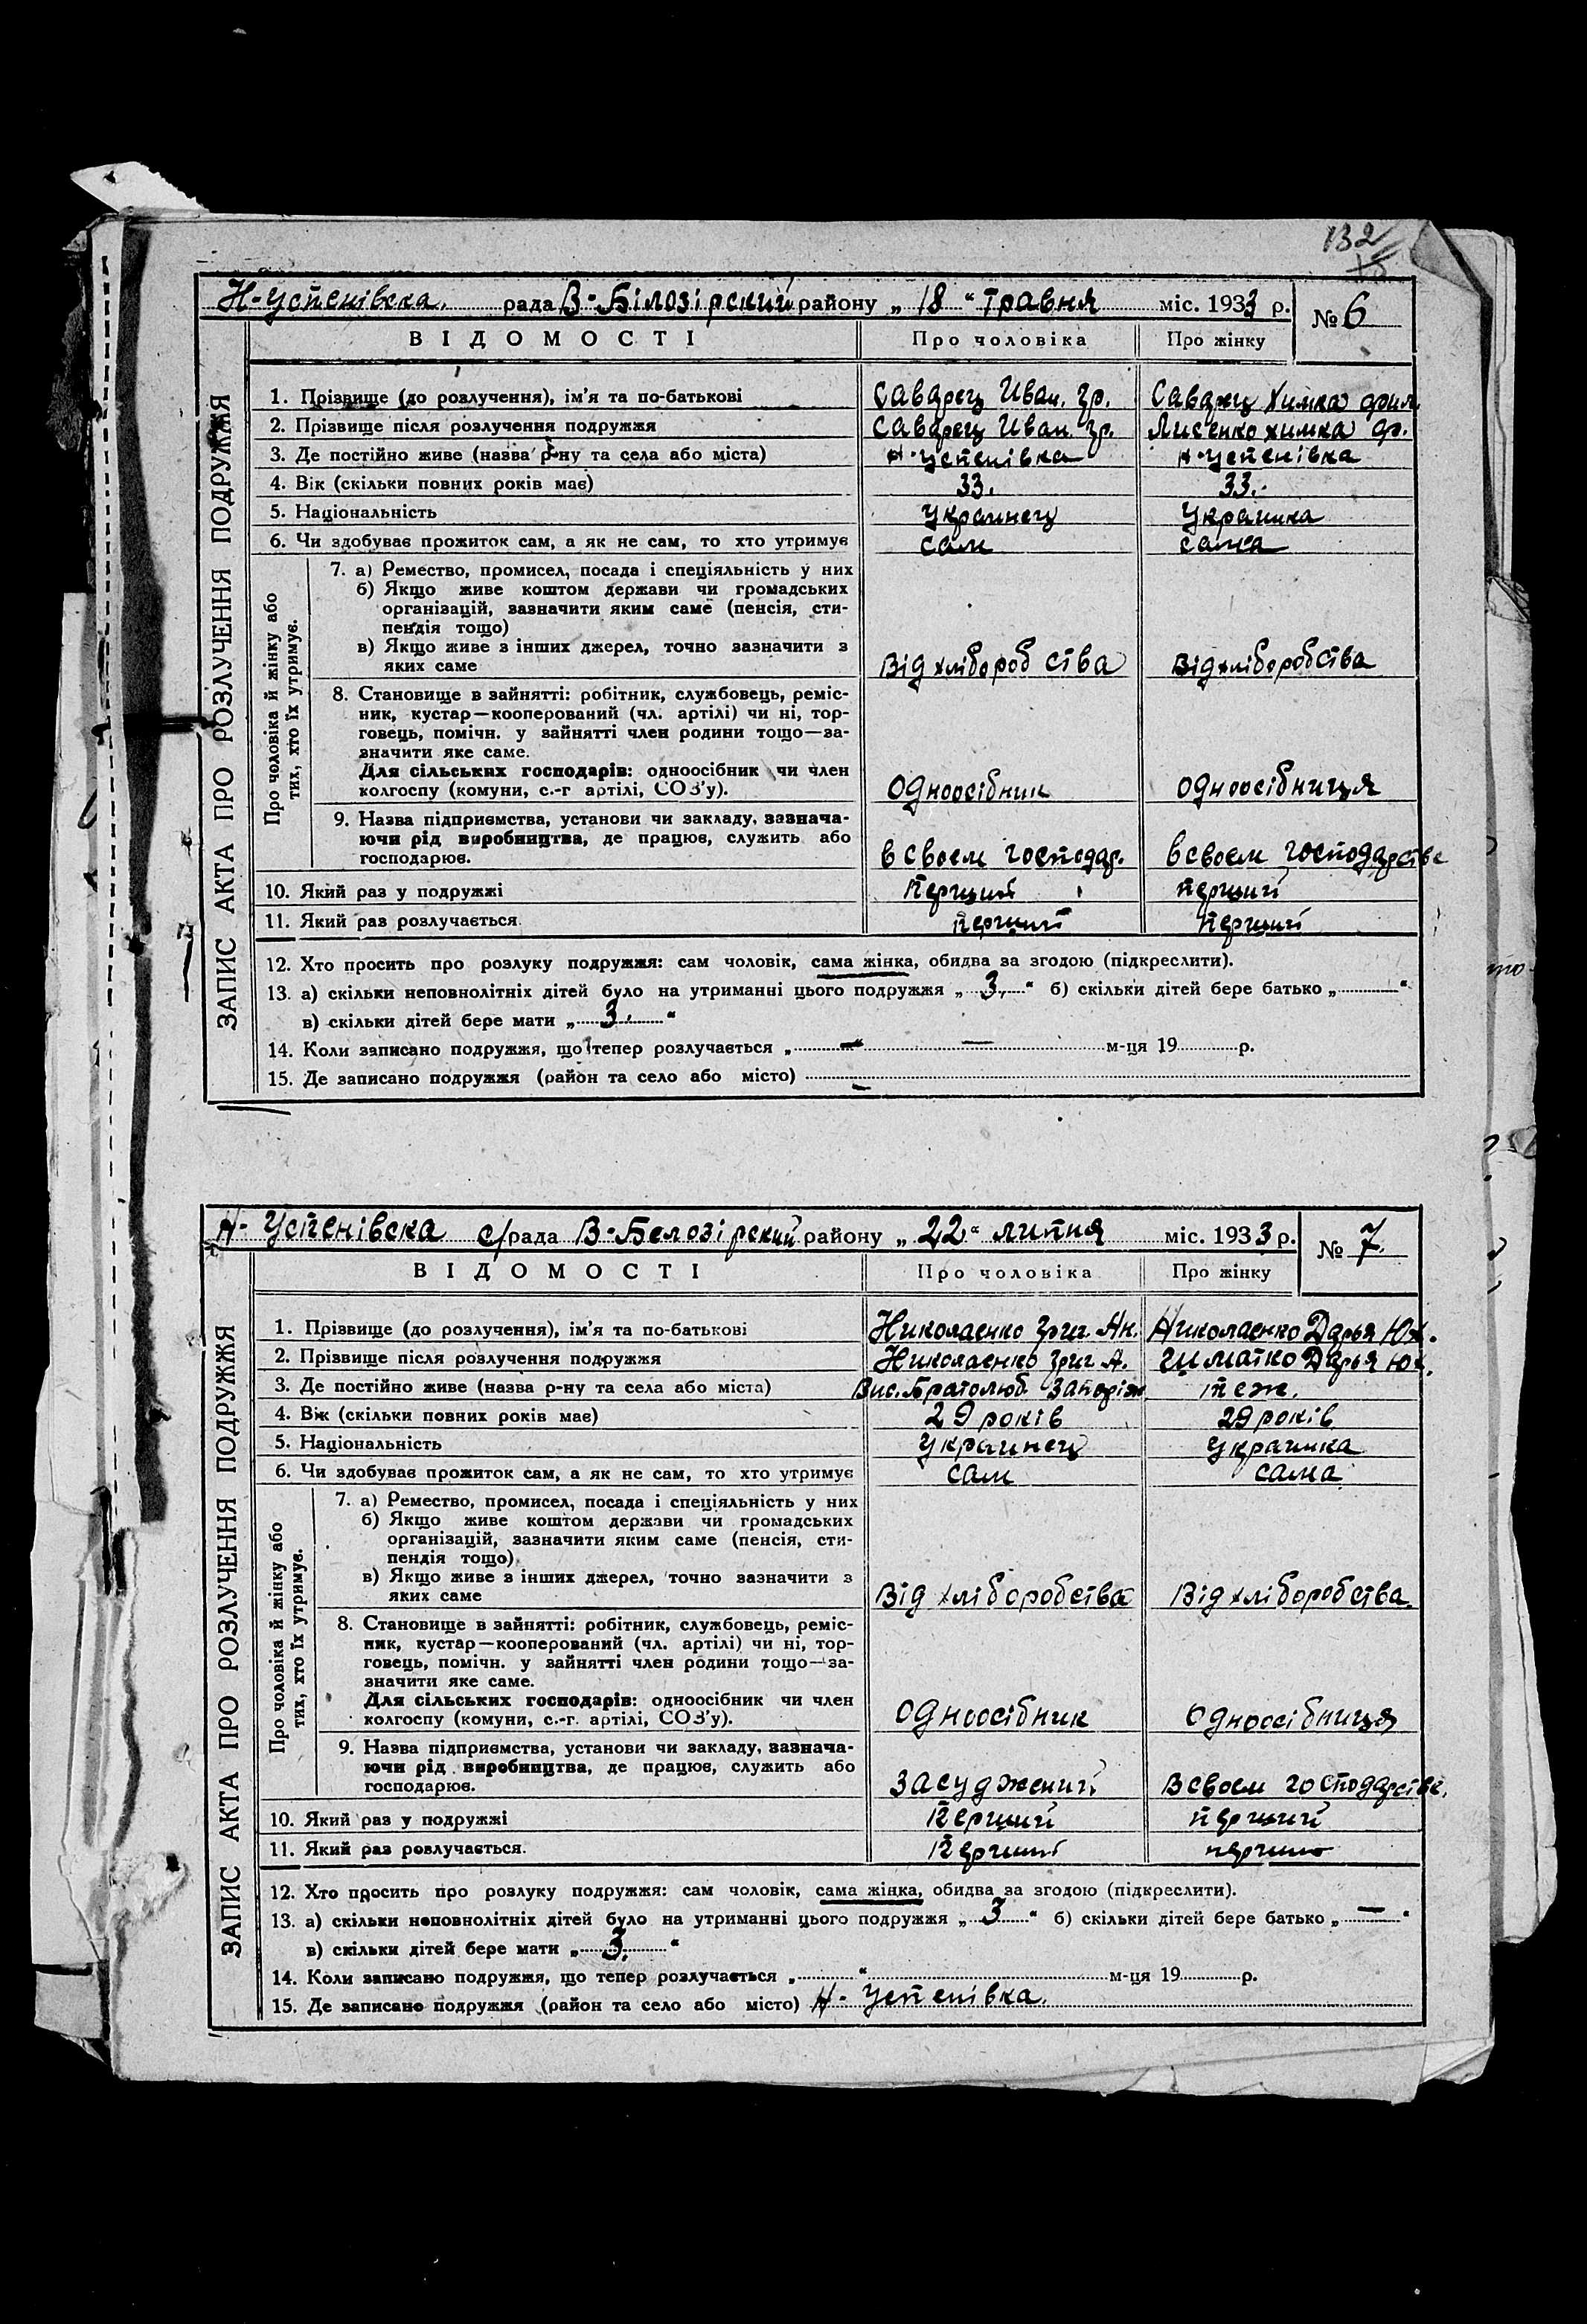 132
Н-Успенівска. рада В-Білозірский району „ 18 “ травня міс. 1933 р. № 6
ВІДОМОСТІ Про чоловіка Про жінку
ЗАПИС АКТА ПРО РОЗЛУЧЕННЯ ПОДРУЖЖЯ
1. Прізвище (до розлучення), ім'я та по-батькові Саварец Иван. Гр. Саварец Химка Фил.
2. Прізвище після розлучення подружжя Саварец Иван. Гр. Лисенко Химка Ф.
3. Де постійно живе (назва р-ну та села або міста) Н-Успенівка Н-Успенівка
4. Вік (скільки повних років має) 33. 33.
5. Національність Украинец Украинка
6. Чи здобуває прожиток сам, а як не сам, то хто утримує сам сама
Про чоловіка й жінку або
тих, хто їх утримує.
7. а) Ремество, промисел, посада і спеціяльність у них
б) Якщо живе коштом держави чи громадських
організацій, зазначити яким саме (пенсія, сти-
пендія тощо)
в) Якщо живе з інших джерел, точно зазначити з
яких саме Від хліборобства Від хліборобства
8. Становище в зайнятті: робітник, службовець, реміс-
ник, кустар—кооперований (чл. артілі) чи ні, тор-
говець, помічн. у зайнятті член родини тощо—за-
значити яке саме.
Для сільських господарів: одноосібник чи член
колгоспу (комуни, с.-г артілі, СОЗ'у). Одноосібник Одноосібниця
9. Назва підприємства, установи чи закладу, зазнача-
ючи рід виробництва, де працює, служить або
господарює. в своем господар. в своем господарстве
10. Який раз у подружжі перший перший
11. Який раз розлучається. перший перший
12. Хто просить про розлуку подружжя: сам чоловік, сама жінка, обидва за згодою (підкреслити).
13. а) скільки неповнолітніх дітей було на утриманні цього подружжя „ 3. “ б) скільки дітей бере батько „ “
в) скільки дітей бере мати „ 3. “
14. Коли записано подружжя, що тепер розлучається „ — “ — м-ця 19 р.
15. Де записано подружжя (район та село або місто) —
Н- Успенівска с/рада В-Белозірский району „ 22 “ липня міс. 1933 р. № 7.
ВІДОМОСТІ Про чоловіка Про жінку
ЗАПИС АКТА ПРО РОЗЛУЧЕННЯ ПОДРУЖЖЯ
1. Прізвище (до розлучення), ім'я та по-батькові Николаенко Григ. Ан. Николаенко Дарья Юх.
2. Прізвище після розлучення подружжя Николаенко Григ А. Дарья Юх.
3. Де постійно живе (назва р-ну та села або міста) теж.
4. Вік (скільки повних років має) 29 років 29 років
5. Національність Украинец Украинка
6. Чи здобуває прожиток сам, а як не сам, то хто утримує сам сама
Про чоловіка й жінку або
тих, хто їх утримує.
7. а) Ремество, промисел, посада і спеціяльність у них
б) Якщо живе коштом держави чи громадських
організацій, зазначити яким саме (пенсія, сти-
пендія тощо)
в) Якщо живе з інших джерел, точно зазначити з
яких саме Від хліборобства Від хліборобства.
8. Становище в зайнятті: робітник, службовець, реміс-
ник, кустар—кооперований (чл. артілі) чи ні, тор-
говець, помічн. у зайнятті член родини тощо—за-
значити яке саме.
Для сільських господарів: одноосібник чи член
колгоспу (комуни, с.-г. артілі, СОЗ'у). Одноосібник Одноосібниця
9. Назва підприємства, установи чи закладу, зазнача-
ючи рід виробництва, де працює, служить або
господарює. Засуджений В своем господарстве.
10. Який раз у подружжі Перший перший
11. Який раз розлучається. Перший перший
12. Хто просить про розлуку подружжя: сам чоловік, сама жінка, обидва за згодою (підкреслити).
13. а) скільки неповнолітніх дітей було на утриманні цього подружжя „ 3 “ б) скільки дітей бере батько „ — “
в) скільки дітей бере мати „ 3. “
14. Коли записано подружжя, що тепер розлучається „ “ м-ця 19 р.
15. Де записано подружжя (район та село або місто) Н- Успенівка.